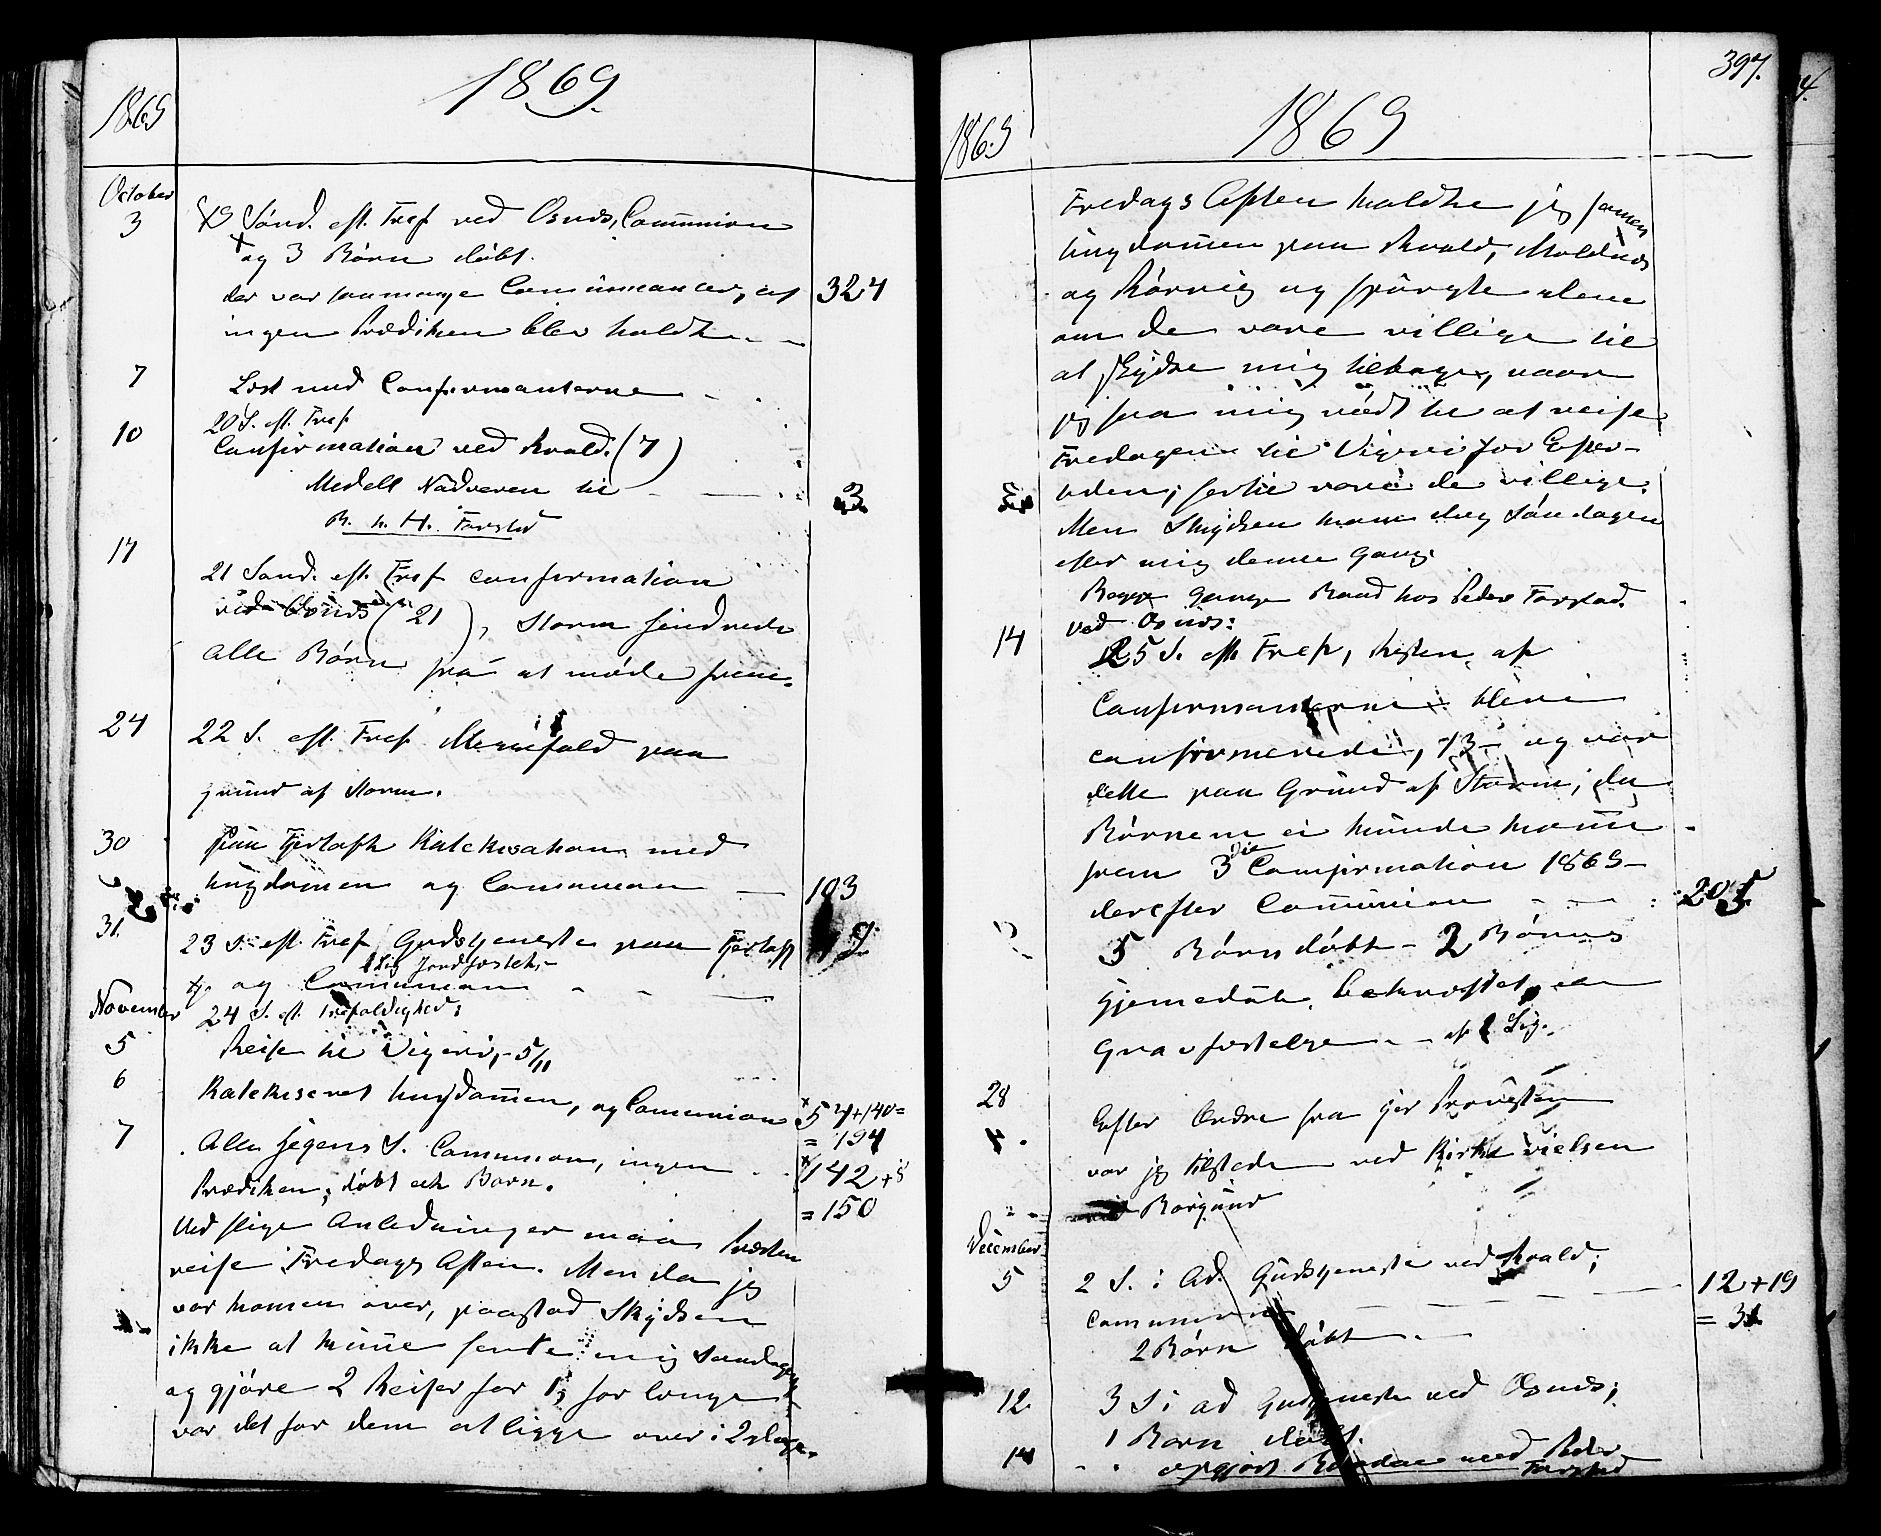 1869
1869.
October
3
19 Sönd. eft. Tref ved Osnæs, Communion
og 3 Börn döbt.
der var saamange Communicanter, at
324
ingen Prædiken blev holdt
7
Læst med Confirmanterne
20 S. eft. Tref
10
Confirmation ved Roald. (7)
Meddelt Nadveren til
3
Farstad
17
21 Sönd. eft. Tref confirmation
ved Osnæs (21), Storm hindrede
alle Börn fra at möde frem.
24
22 S. eft. Tref Messefald paa
grund af Storm.
30
paa Fjertoft Katekisation med
Ungdomen og Communion
103
31.
23 S. eft. Tref Gudstjeneste paa Fjertoft
9
Lig Jordfæstet,
og Communion
November
24 S. eft. Trefoldighed:
5
Reise til Vigeri, 5/11
6
Katekiseret Ungdommen, og Comunion
54+140=
= 194
7
Alle Helgens S. Communion, ingen
142+8
Prædiken, döbt et Barn.
= 150
Ved slige Anledninger maa Præsten
reise Fredags Aften. Men da jeg
var kommen over, paastod Skydsen
ikke at kunne hente mig Sondag
og gjöre 2 Reiser for 1; for længe
var det for dem at ligge over i 2 dage.
397.
1869
1869
Fredags Aften holdte jeg sammen
Ungdommen paa Roald, Molnæs
og Rörvig og spurgte dem
om de vare villige til
at skydse mig tilbage, naar
jeg saa mig nödt til at reise
Fredagen til Vigeri for Efter-
tiden; hertil vare de villige.
Men Skydsen kom dog Söndagen
efter mig denne Gang.
Begge Gange Baad hos Peder Farstad.
ved Osnæs:
14
25 S. eft Tref, Resten af
Confirmanterne bleve
confirmerede, 13 og var
dette paa Grund af Storm, da
Börnene ei kunde komme
frem 3die Confirmation 1869
derefter Communion
205
5 Börn döbt - 2 Börns
Hjemedaab bekræftet, en
Gravfæstelse af 1 Lig.
28
Efter Ordre fra Hr Provsten
var jeg tilstede ved Kirkevielsen
ved Borgund
December
5
2 S. i Ad. Gudstjeneste ved Roald;
12+19
Communion
= 31
2 Börn döbt
12.
3 S i ad Gudstjeneste ved Osnæs;
1 Barn döbt.
14
opgjort med Peder
Farstad